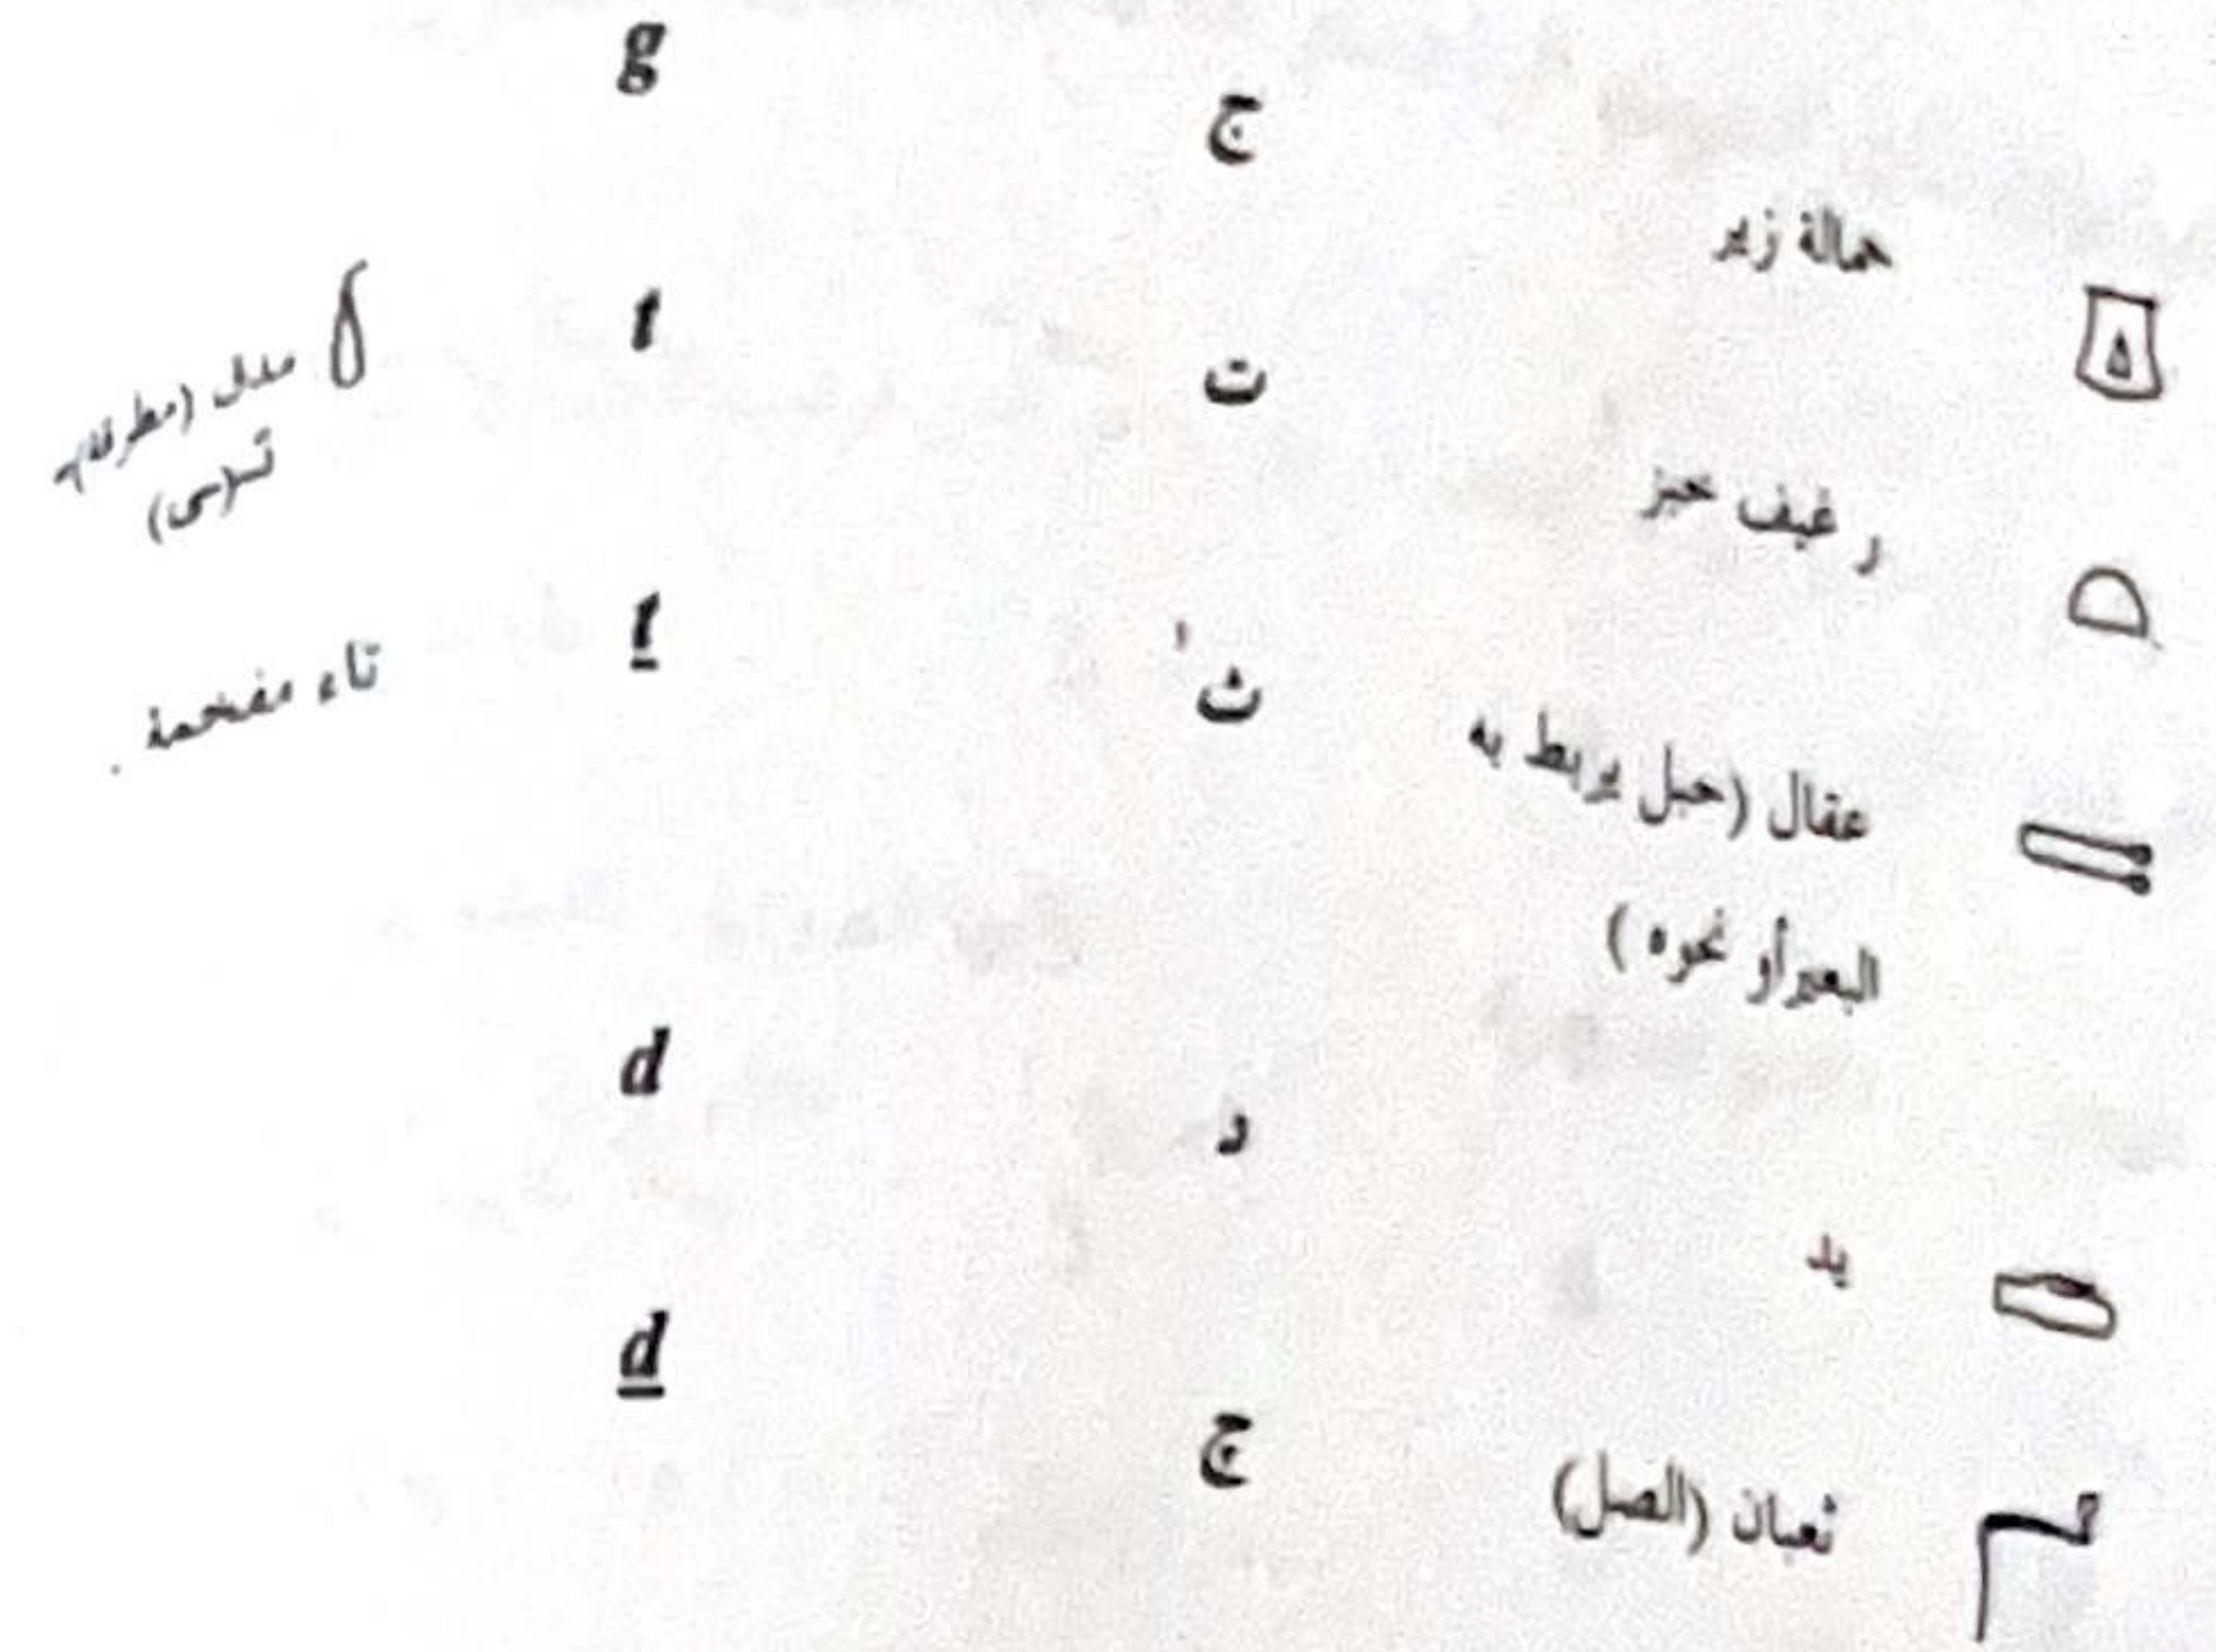 حمالة زير ج g
رغيف خبز ت t
عقال (حبل يربط به ث t
البعير أو نحوه)
يد د d
ثعبان (الصل) ج d
تاء مفخمة